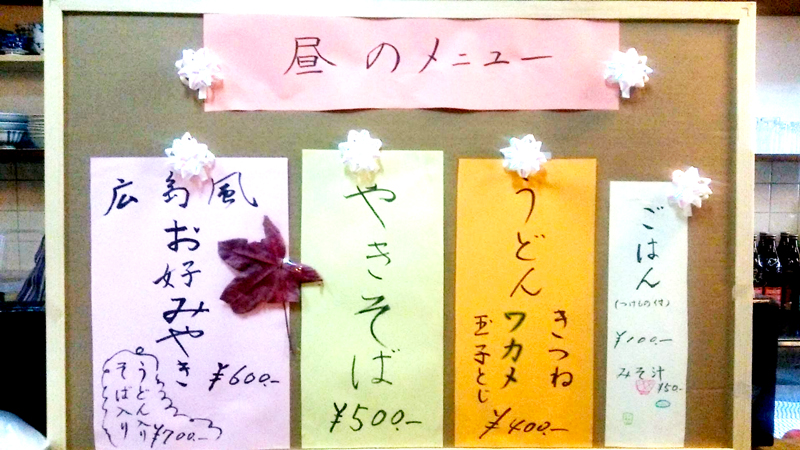 昼のメニュー
広島風
お好みやき
¥600.-
うどん入り
そば入り
¥700.-
やきそば
¥500.-
うどん
きつね
ワカメ
玉子とじ
¥400.-
ごはん
(つけもの付)
¥100.-
みそ汁
¥50.-